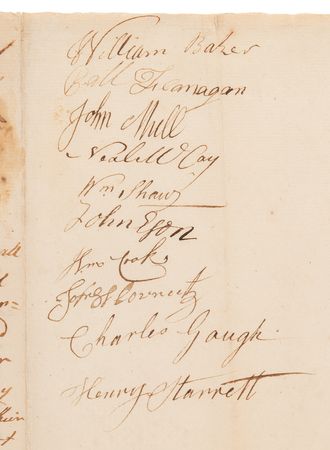 William Baker
Flanagan
John Mull
Neale McCay
Wm Shaw
John Egon
Wm Cook
Charles Gaugh
Henry Starrett
all